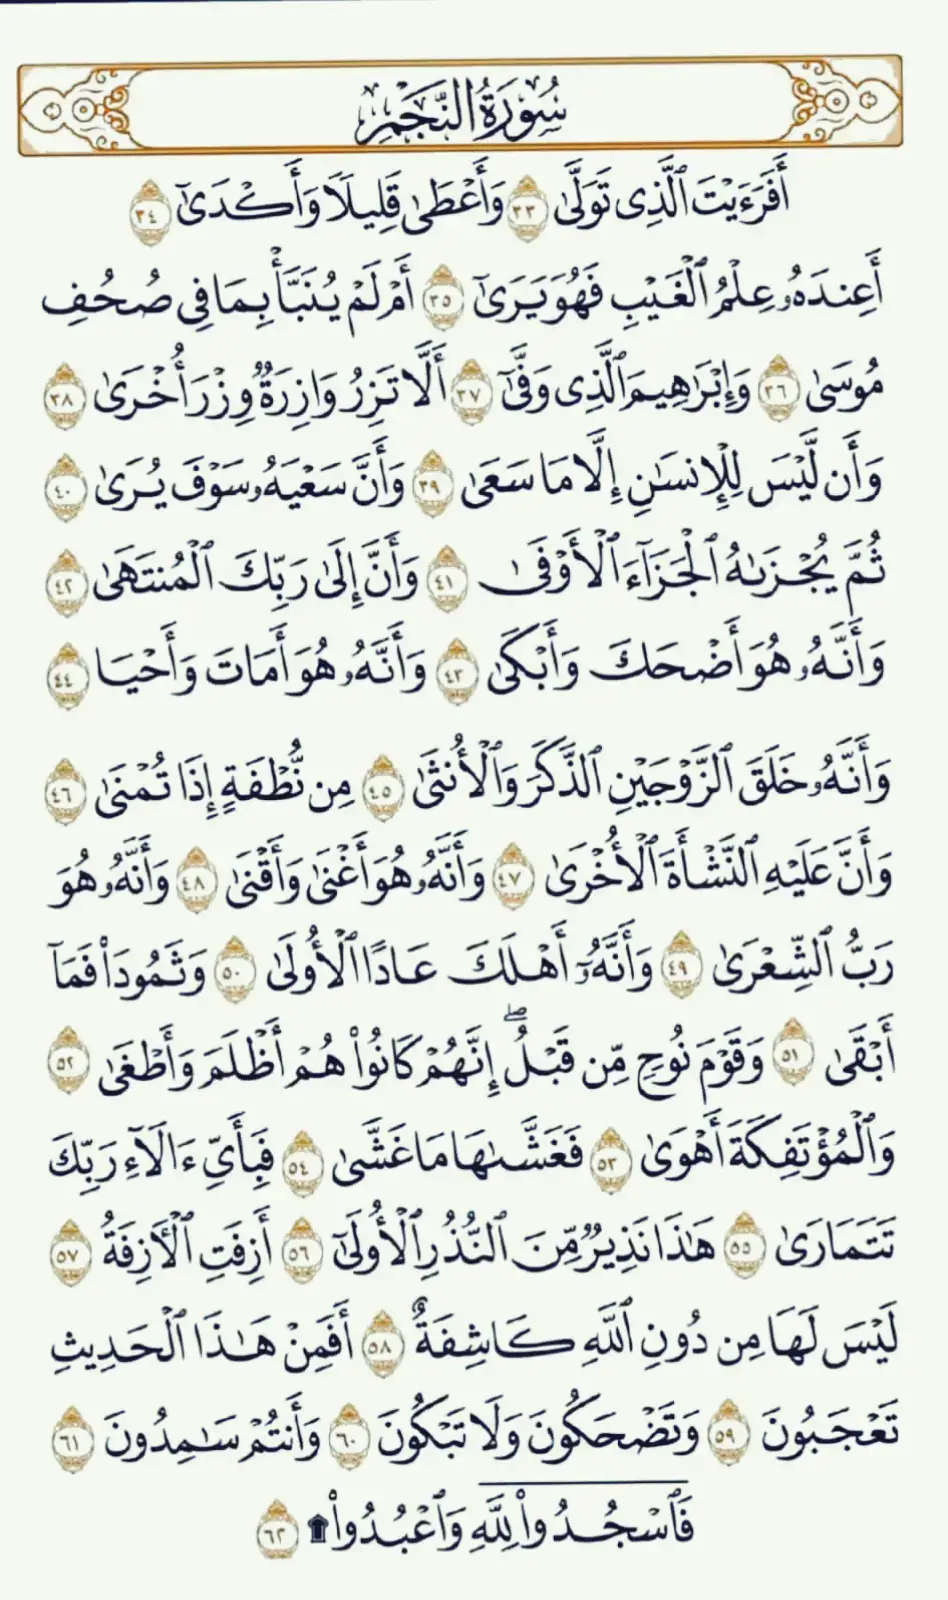 سُورَةُ النَّجْمِ
أَفَرَءَيْتَ ٱلَّذِى تَوَلَّىٰ ٣٣ وَأَعْطَىٰ قَلِيلًا وَأَكْدَىٰٓ ٣٤
أَعِندَهُۥ عِلْمُ ٱلْغَيْبِ فَهُوَ يَرَىٰٓ ٣٥ أَمْ لَمْ يُنَبَّأْ بِمَا فِى صُحُفِ
مُوسَىٰ ٣٦ وَإِبْرَٰهِيمَ ٱلَّذِى وَفَّىٰٓ ٣٧ أَلَّا تَزِرُ وَازِرَةٌ وِزْرَ أُخْرَىٰ ٣٨
وَأَن لَّيْسَ لِلْإِنسَٰنِ إِلَّا مَا سَعَىٰ ٣٩ وَأَنَّ سَعْيَهُۥ سَوْفَ يُرَىٰ ٤٠
ثُمَّ يُجْزَىٰهُ ٱلْجَزَآءَ ٱلْأَوْفَىٰ ٤١ وَأَنَّ إِلَىٰ رَبِّكَ ٱلْمُنتَهَىٰ ٤٢
وَأَنَّهُۥ هُوَ أَضْحَكَ وَأَبْكَىٰ ٤٣ وَأَنَّهُۥ هُوَ أَمَاتَ وَأَحْيَا ٤٤
وَأَنَّهُۥ خَلَقَ ٱلزَّوْجَيْنِ ٱلذَّكَرَ وَٱلْأُنثَىٰ ٤٥ مِن نُّطْفَةٍ إِذَا تُمْنَىٰ ٤٦
وَأَنَّ عَلَيْهِ ٱلنَّشْأَةَ ٱلْأُخْرَىٰ ٤٧ وَأَنَّهُۥ هُوَ أَغْنَىٰ وَأَقْنَىٰ ٤٨ وَأَنَّهُۥ هُوَ
رَبُّ ٱلشِّعْرَىٰ ٤٩ وَأَنَّهُۥٓ أَهْلَكَ عَادًا ٱلْأُولَىٰ ٥٠ وَثَمُودَا۟ فَمَآ
أَبْقَىٰ ٥١ وَقَوْمَ نُوحٍ مِّن قَبْلُ ۖ إِنَّهُمْ كَانُوا۟ هُمْ أَظْلَمَ وَأَطْغَىٰ ٥٢
وَٱلْمُؤْتَفِكَةَ أَهْوَىٰ ٥٣ فَغَشَّىٰهَا مَا غَشَّىٰ ٥٤ فَبِأَىِّ ءَالَآءِ رَبِّكَ
تَتَمَارَىٰ ٥٥ هَٰذَا نَذِيرٌ مِّنَ ٱلنُّذُرِ ٱلْأُولَىٰٓ ٥٦ أَزِفَتِ ٱلْءَازِفَةُ ٥٧
لَيْسَ لَهَا مِن دُونِ ٱللَّهِ كَاشِفَةٌ ٥٨ أَفَمِنْ هَٰذَا ٱلْحَدِيثِ
تَعْجَبُونَ ٥٩ وَتَضْحَكُونَ وَلَا تَبْكُونَ ٦٠ وَأَنتُمْ سَٰمِدُونَ ٦١
فَٱسْجُدُوا۟ لِلَّهِ وَٱعْبُدُوا۟ ۩ ٦٢